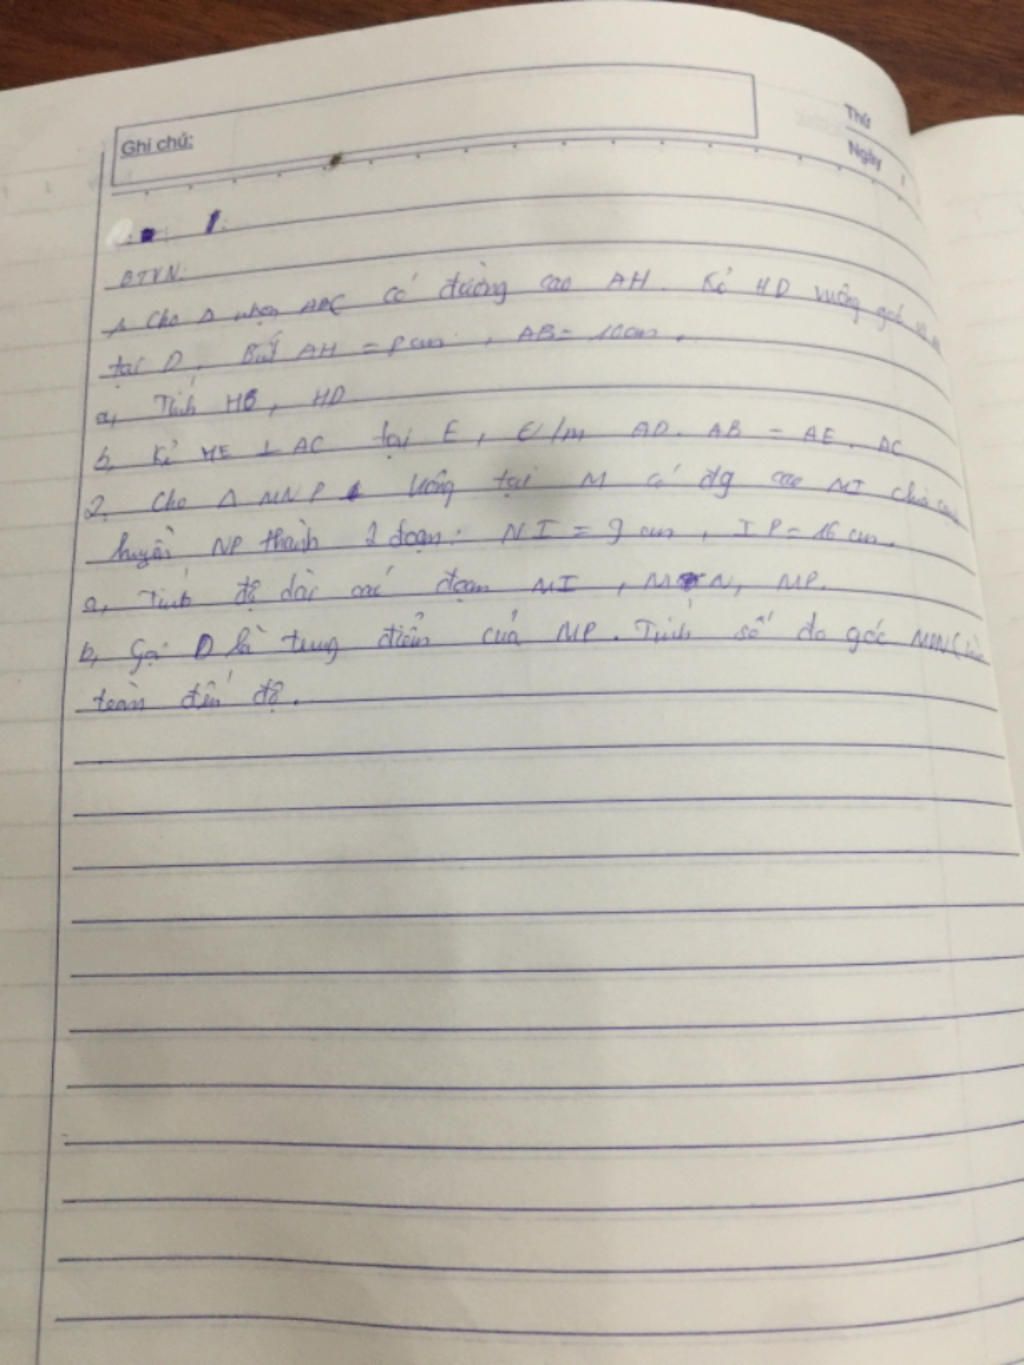 Ghi chú:
Thứ
Ngày
1.
BTVN:
1. Cho Δ nhọn ABC có đường cao AH. Kẻ HD vuông góc
tại D. Biết AH = 8cm, AB = 10cm.
a, Tính HB, HD
b, Kẻ HE ⊥ AC tại E, C/m AD. AB = AE. AC
2. Cho Δ MNP vuông tại M có đg cao MI chia cạnh
huyền NP thành 2 đoạn: NI = 9 cm, IP = 16 cm.
a, Tính độ dài các đoạn MI, MN, MP.
b, Gọi D là trung điểm của MP. Tính số đo góc
tròn đến độ.